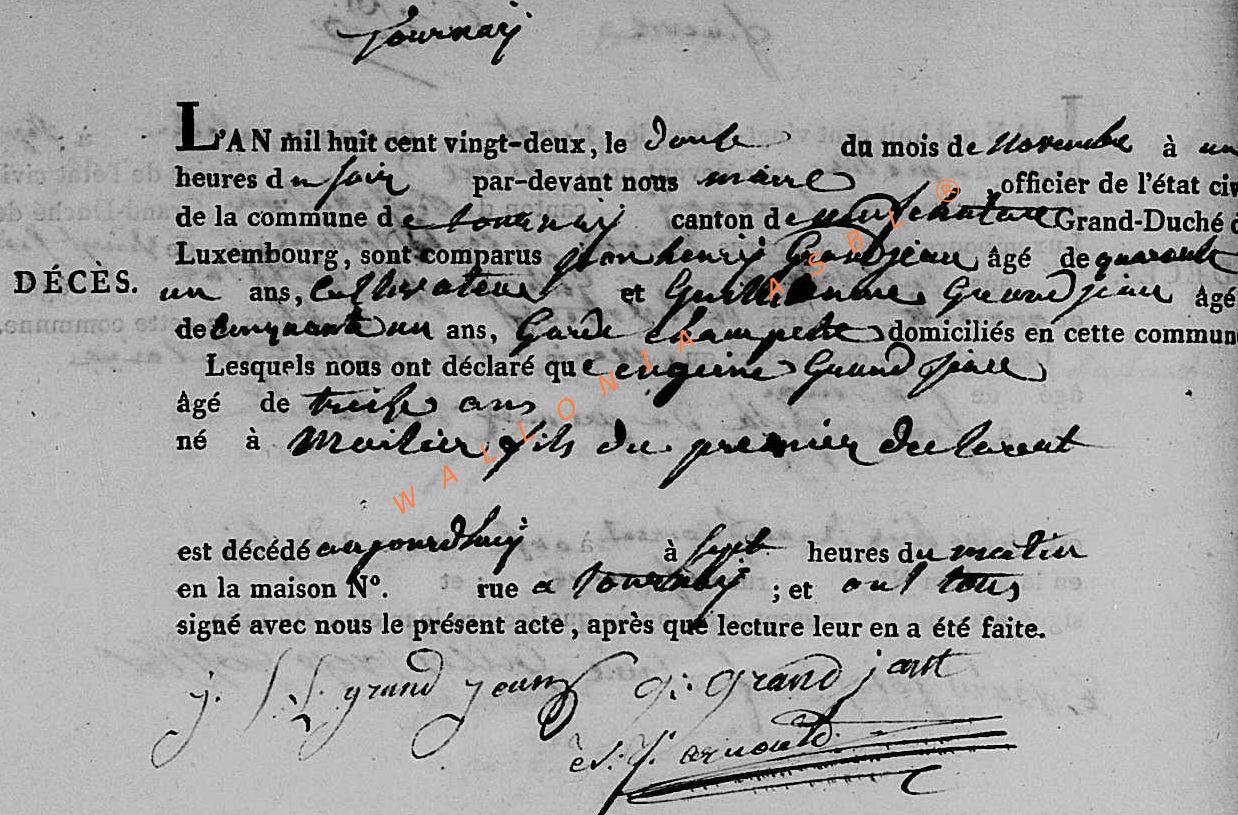 Tournay
L'AN mil huit cent vingt-deux, le douze du mois de novembre à un
heures du soir par-devant nous maire officier de l'état civ
de la commune de tournay canton de neufchateau Grand-Duché d
Luxembourg, sont comparus jean henry Grandjean âgé de quarante
DÉCÈS. un ans, cultivateur et Guillaume Grandjean âgé
de cinquante un ans, Garde champete domiciliés en cette commun
Lesquels nous ont déclaré que eugeine Grand jean
âgé de treise ans
né à fils du premier declarent
est décédé aujourdhuy à sept heures du matin
en la maison N°. rue a tournay ; et ont tous
signé avec nous le présent acte, après que lecture leur en a été faite.
j. h. grand jean g: grand jant
arnould
WALLONIA ASBL ®